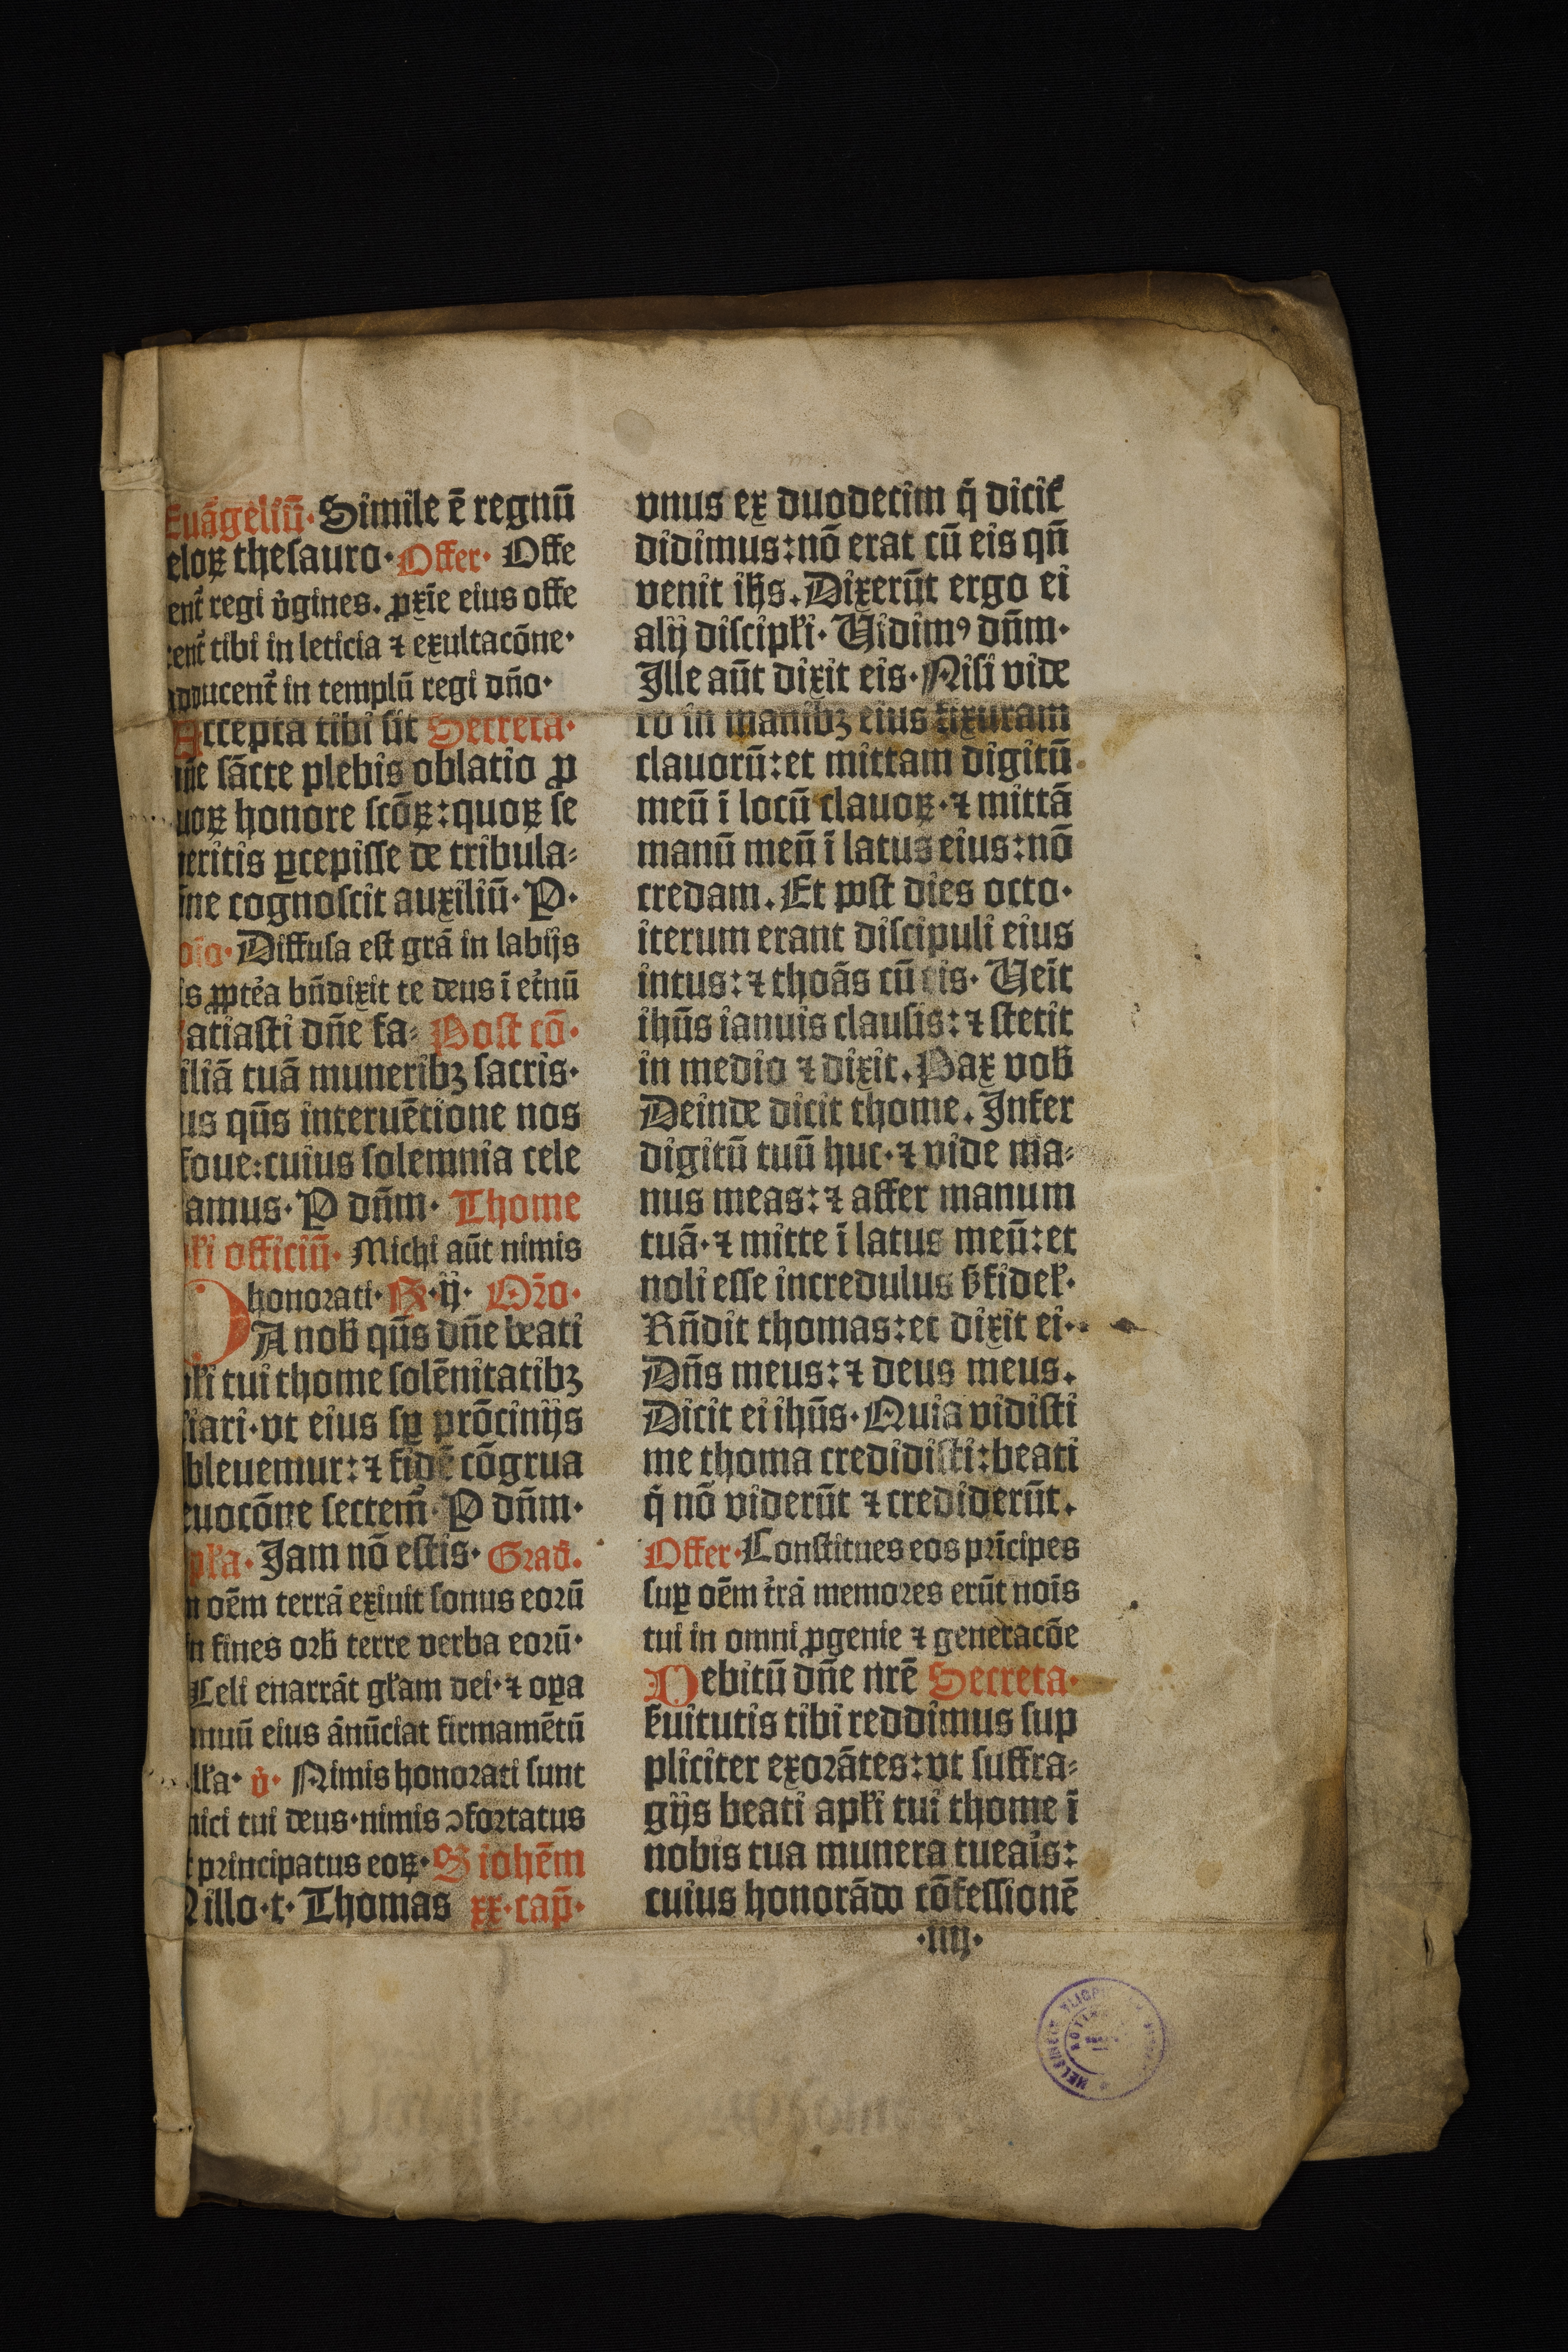 Euāgeliū· Simile ē regnū
eloꝝ thesauro· Offer· Offe
ent̄ regi v̓gines. ꝓxīe eius offe
ent̄ tibi in leticia ⁊ exultacōne·
ducent̄ in templū regi dn̄o·
Accepta tibi sit Secreta·
sācte plebis oblatio ꝓ
uoꝝ honore scōꝝ: quoꝝ se
eritis ꝑcepisse de tribula⸗
ne cognoscit auxiliū· P·
Diffusa est grā in labijs
is ꝓpt̓ea bn̄dixit te deus ī et̓nū
atiasti dn̄e fa⸗ Post cō·
iliā tuā muneribꝫ sacris·
us qn̄s interuētione nos
foue: cuius solemnia cele
amus· P dn̄m· Thome
pƚi officiū· Michi aūt nimis
honorati· R· ij· Or̄o·
DA nob̄ qn̄s dn̄e beati
pƚi tui thome solēnitatibꝫ
iari· vt eius sꝑ prōcinijs
bleuemur: ⁊ fidē cōgrua
uocōne sectem̄· P dn̄m·
pƚa· Jam nō estis· Grad̄·
n oēm terrā exiuit sonus eorū
in fines orb̄ terre verba eorū·
Celi enarrāt gƚam dei· ⁊ oꝑa
nuū eius ānūciat firmamētū
lƚa· v̓· Nimis honorati sunt
ici tui deus· nimis ↄfortatus
principatus eoꝝ· S iohēm
N illo· t· Thomas xx· cap̄·
vnus ex duodecim q̄ dicit̄
didimus: nō erat cū eis qn̄
venit ihs̄. Dixerūt ergo ei
alij discipƚi· Vidimꝰ dn̄m·
Ille aūt dixit eis· Nisi vide
ro in manibꝫ eius fixuram
clauorū: et mittam digitū
meū ī locū clauoꝝ· ⁊ mittā
manū meū ī latus eius: nō
credam. Et post dies octo·
iterum erant discipuli eius
intus: ⁊ thoās cū eis· Veīt
ihūs ianuis clausis: ⁊ stetit
in medio ⁊ dixit. Pax vob̄
Deinde dicit thome. Infer
digitū tuū huc· ⁊ vide ma⸗
nus meas: ⁊ affer manum
tuā· ⁊ mitte ī latus meū: et
noli esse incredulus s̄ fideƚ·
Rn̄dit thomas: et dixit ei·
Dn̄s meus: ⁊ deus meus.
Dicit ei ihūs· Quia vidisti
me thoma credidisti: beati
q̄ nō viderūt ⁊ crediderūt.
Offer· Constitues eos prīcipes
suꝑ oēm t̓rā memores erūt noīs
tui in omni ꝓgenie ⁊ generacōe
Debitū dn̄e nrē Secreta·
s̓uitutis tibi reddimus sup
pliciter exorātes: vt suffra⸗
gijs beati apƚi tui thome ī
nobis tua munera tuearis:
cuius honorādo cōfessionē
·iiij·